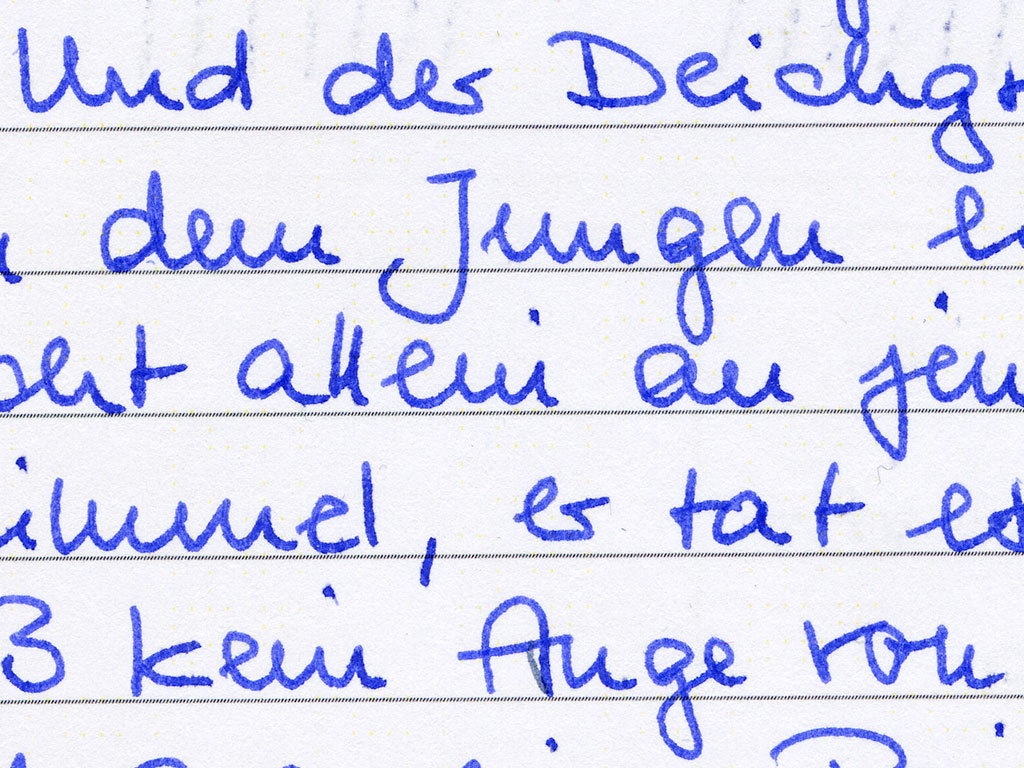 Und der Deichg
dem Jungen e
allein an jen
immel, er tat es
ß kein Auge von